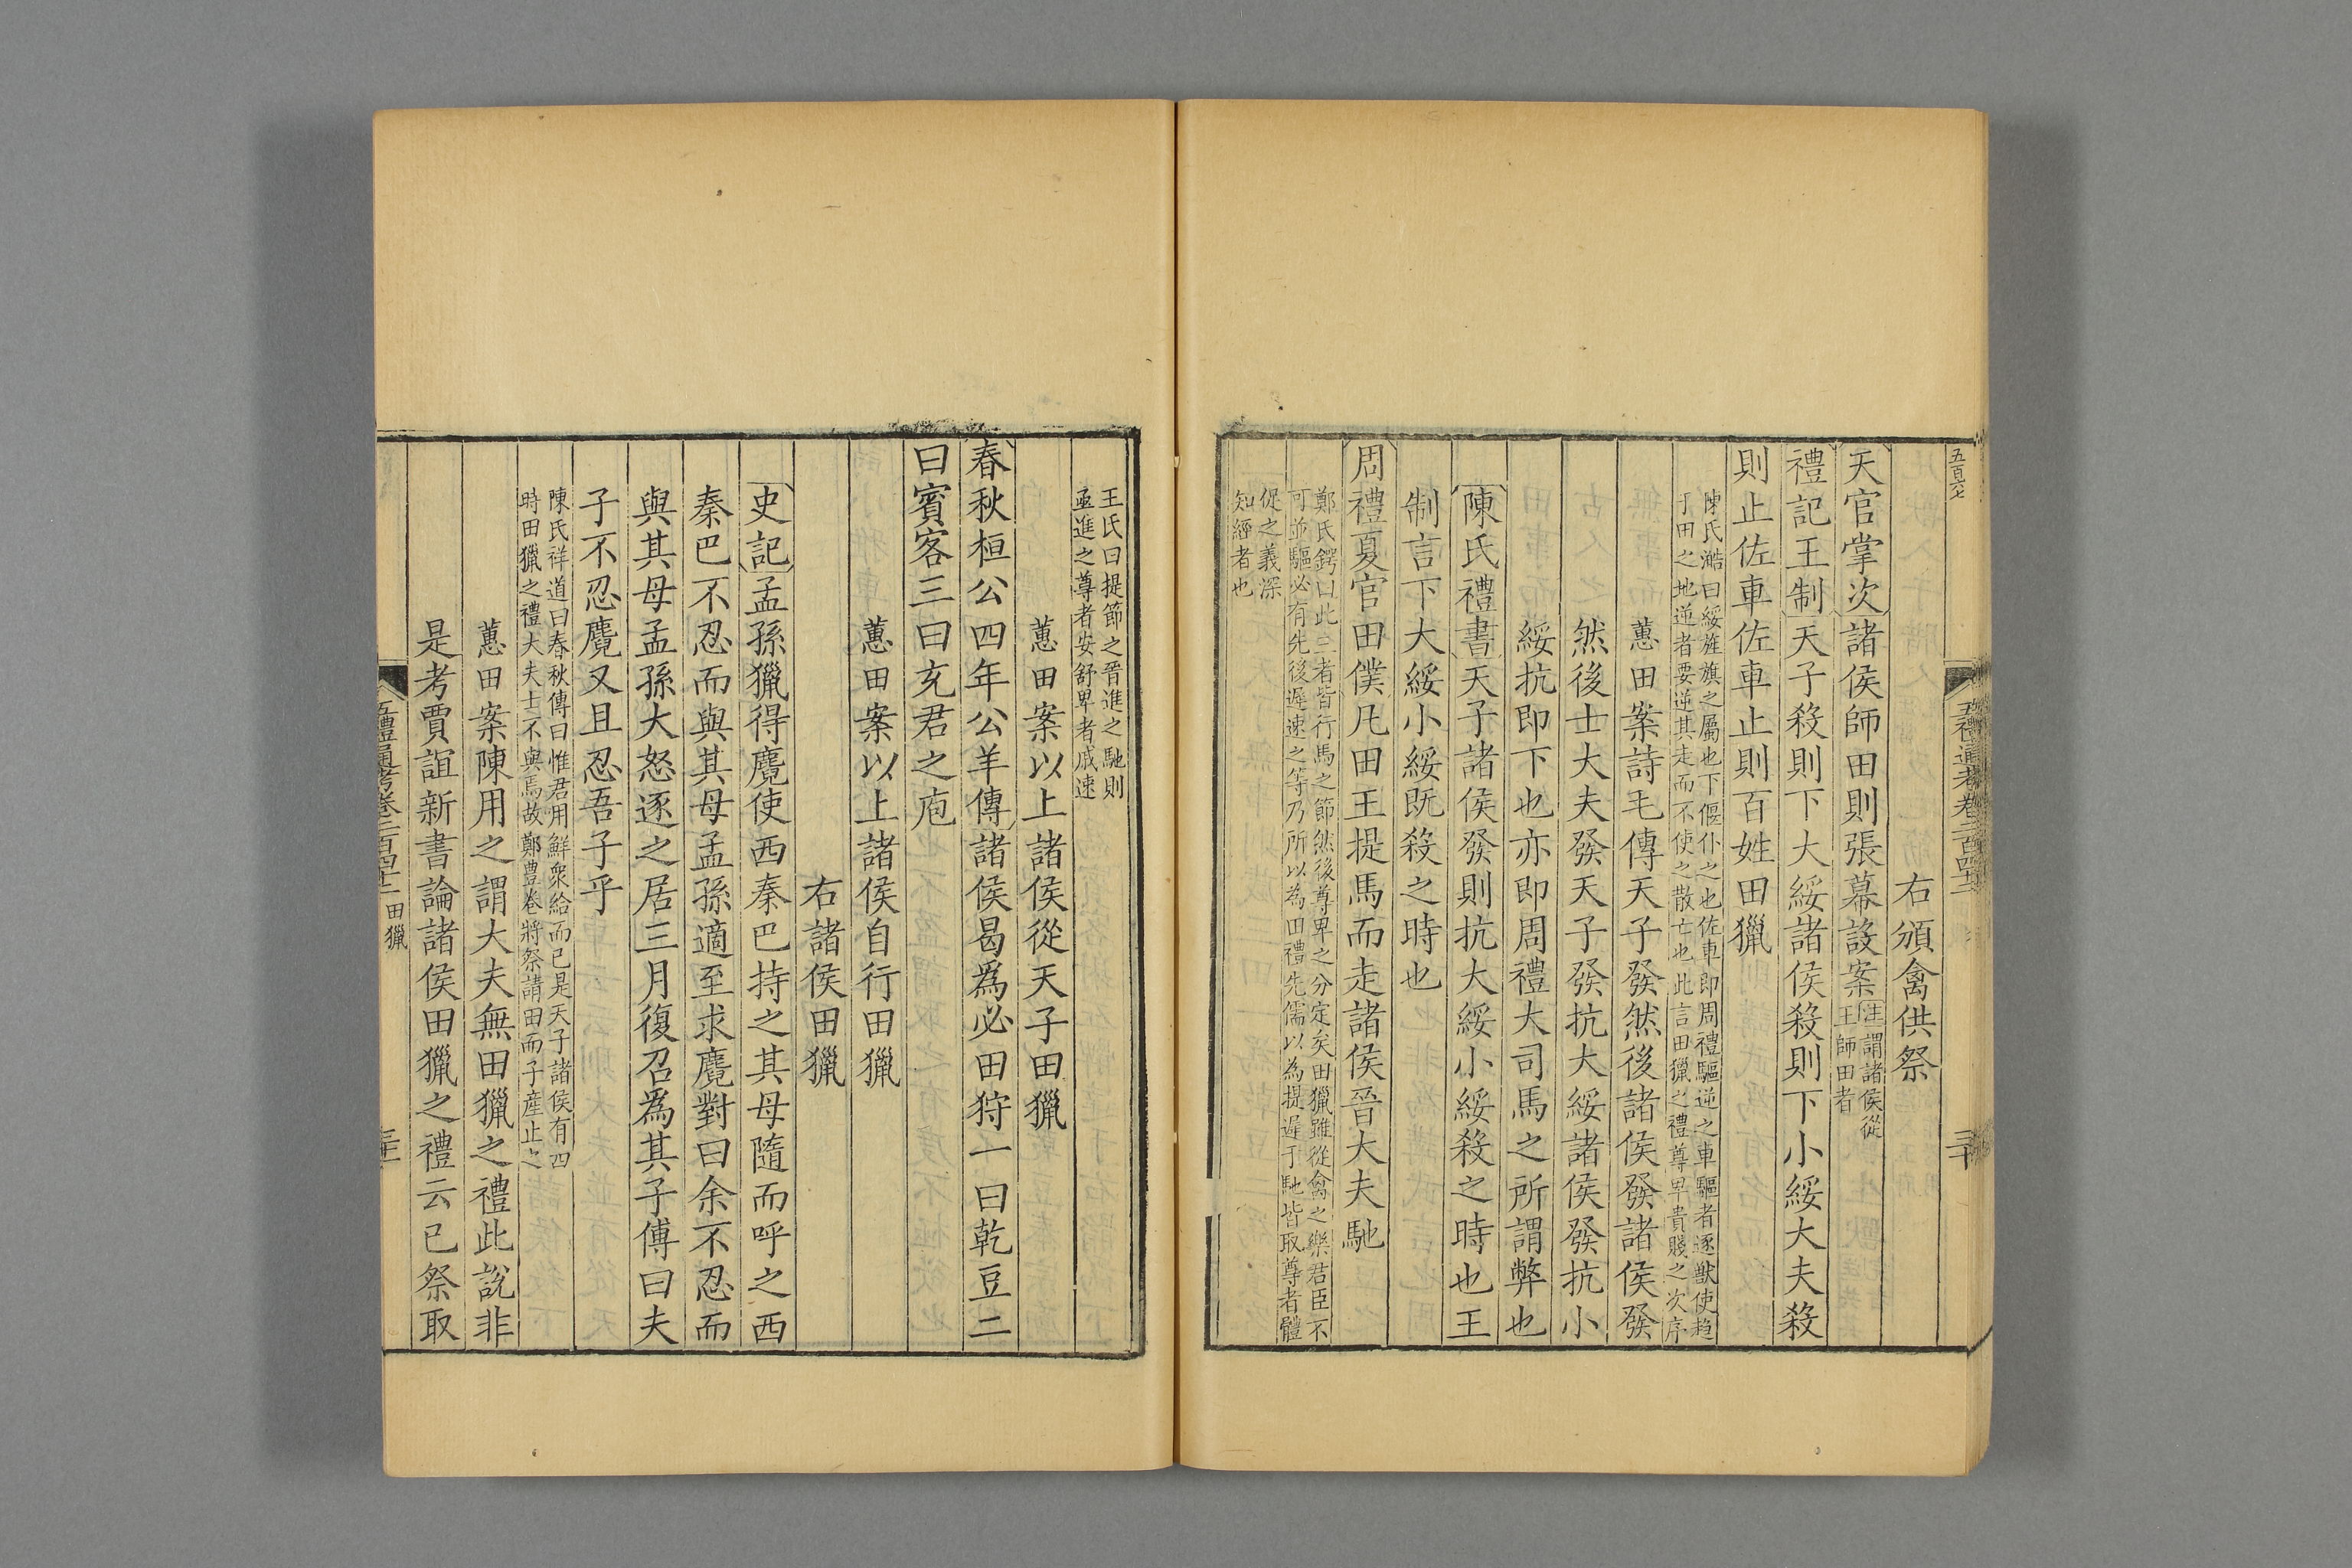 五百六七
五禮通考卷二百四十二
三十
右頒禽供祭
天官掌次諸侯師田則張幕設案注謂諸侯從
王師田者
禮記王制天子殺則下大綏諸侯殺則下小綏大夫殺
則止佐車佐車止則百姓田獵
陳氏澔曰綏旌旗之屬也下偃仆之也佐車即周禮驅逆之車驅者逐獸使趨
于田之地逆者要逆其走而不使之散亡也此言田獵之禮尊卑貴賤之次序
蕙田案詩毛傳天子發然後諸侯發諸侯發
然後士大夫發天子發抗大綏諸侯發抗小
綏抗即下也亦即周禮大司馬之所謂弊也
陳氏禮書天子諸侯發則抗大綏小綏殺之時也王
制言下大綏小綏既殺之時也
周禮夏官田僕凡田王提馬而走諸侯晉大夫馳
鄭氏鍔曰此三者皆行馬之節然後尊卑之分定矣田獵雖從禽之樂君臣不
可並驅必有先後遲速之等乃所以為田禮先儒以為提遲于馳皆取尊者體
促之義深
知經者也
王氏曰提節之晉進之馳則
亟進之尊者安舒卑者戚速
蕙田案以上諸侯從天子田獵
春秋桓公四年公羊傳諸侯曷爲必田狩一曰乾豆二
曰賓客三曰充君之庖
蕙田案以上諸侯自行田獵
右諸侯田獵
史記孟孫獵得麑使西秦巴持之其母隨而呼之西
秦巴不忍而與其母孟孫適至求麑對曰余不忍而
與其母孟孫大怒逐之居三月復召爲其子傅曰夫
子不忍麑又且忍吾子乎
陳氏祥道曰春秋傳曰惟君用鮮衆給而已是天子諸侯有四
時田獵之禮大夫士不與焉故鄭豐卷將祭請田而子產止之
蕙田案陳用之謂大夫無田獵之禮此說非
是考賈誼新書論諸侯田獵之禮云已祭取
五禮通考卷二百四十二 田獵
三十一